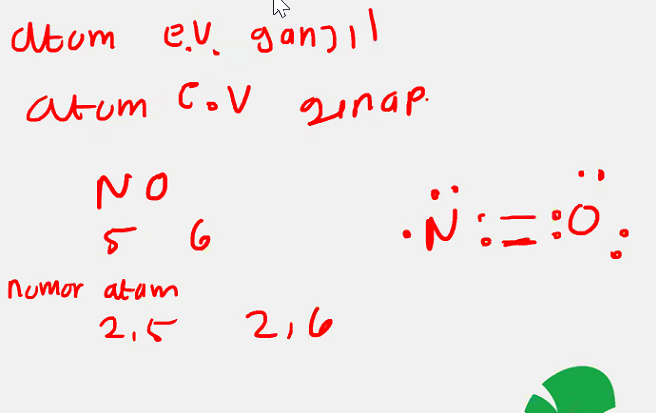 atom e.v. ganjil
atom e.v genap.
N O
5 6
nomor atom
2,5 2,6
N = O